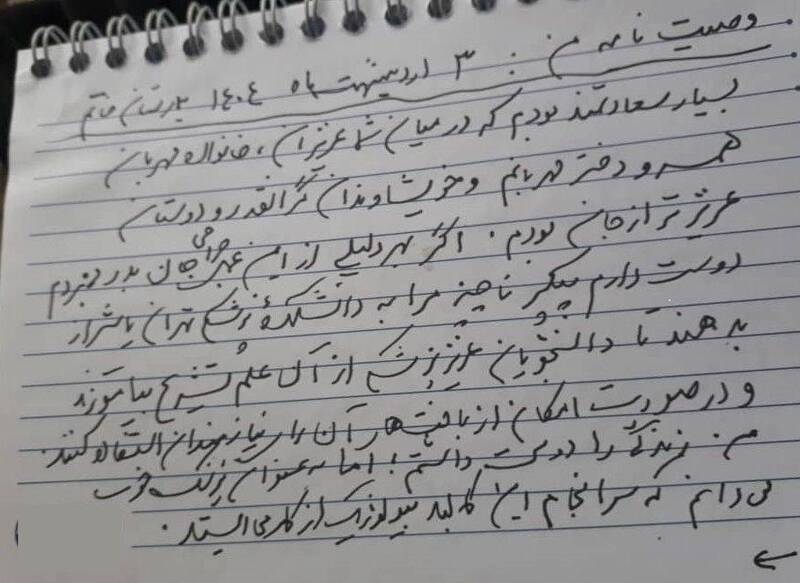 وصیت نامه من : ۳ اردیبهشت ماه ۱۴۰۴ بیمارستان خاتم
بسیار سعادتمند بودم که در میان شما عزیزان، خانواده مهربان
همسر و دختر مهربانم و خویشاوندان گرانقدر و دوستان
عزیزتر از جان بودم. اگر بهر دلیلی از این عمل جراحی جان بدر نبردم
دوست دارم پیکر ناچیز مرا به دانشکدهٔ پزشکی تهران یا شیراز
بدهند تا دانشجویان عزیز پزشکی از آن علم تشریح بیاموزند
و در صورت امکان از بافت‌های آن برای نیازمندان استفاده کنند.
من زندگی را دوست داشتم؛ اما به عنوان پزشک خوب
می‌دانم که سرانجام این کالبد بیولوژیک از کار می‌ایستد.
←